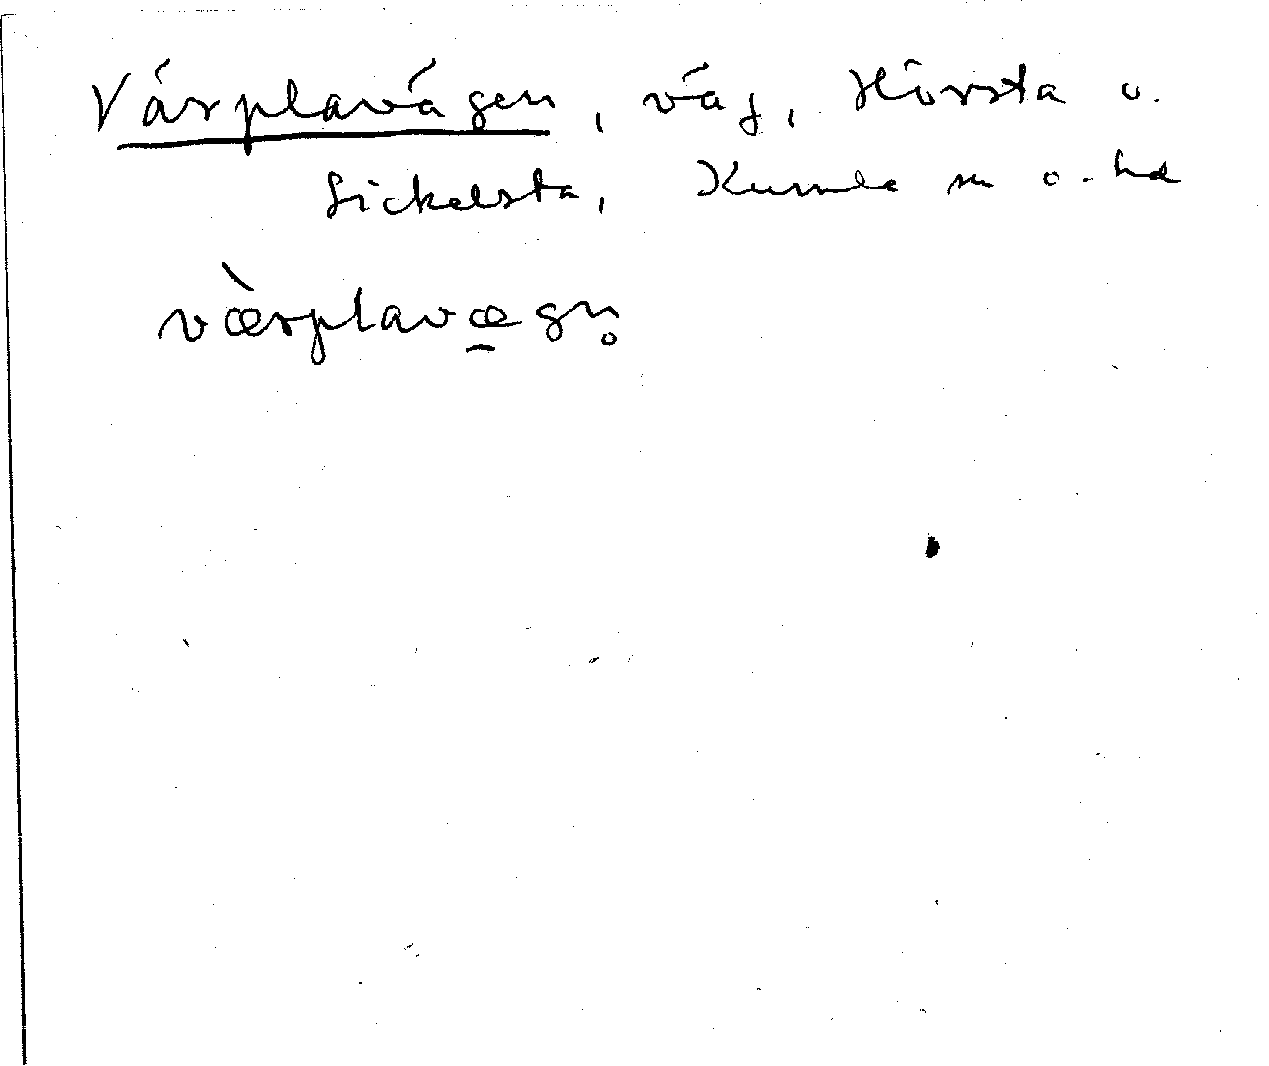 Värplavägen, väg, Hörsta o.
Sickelsta, Kumla sn o. hd
v&#x00E6;̀rplavæ̱gn̥